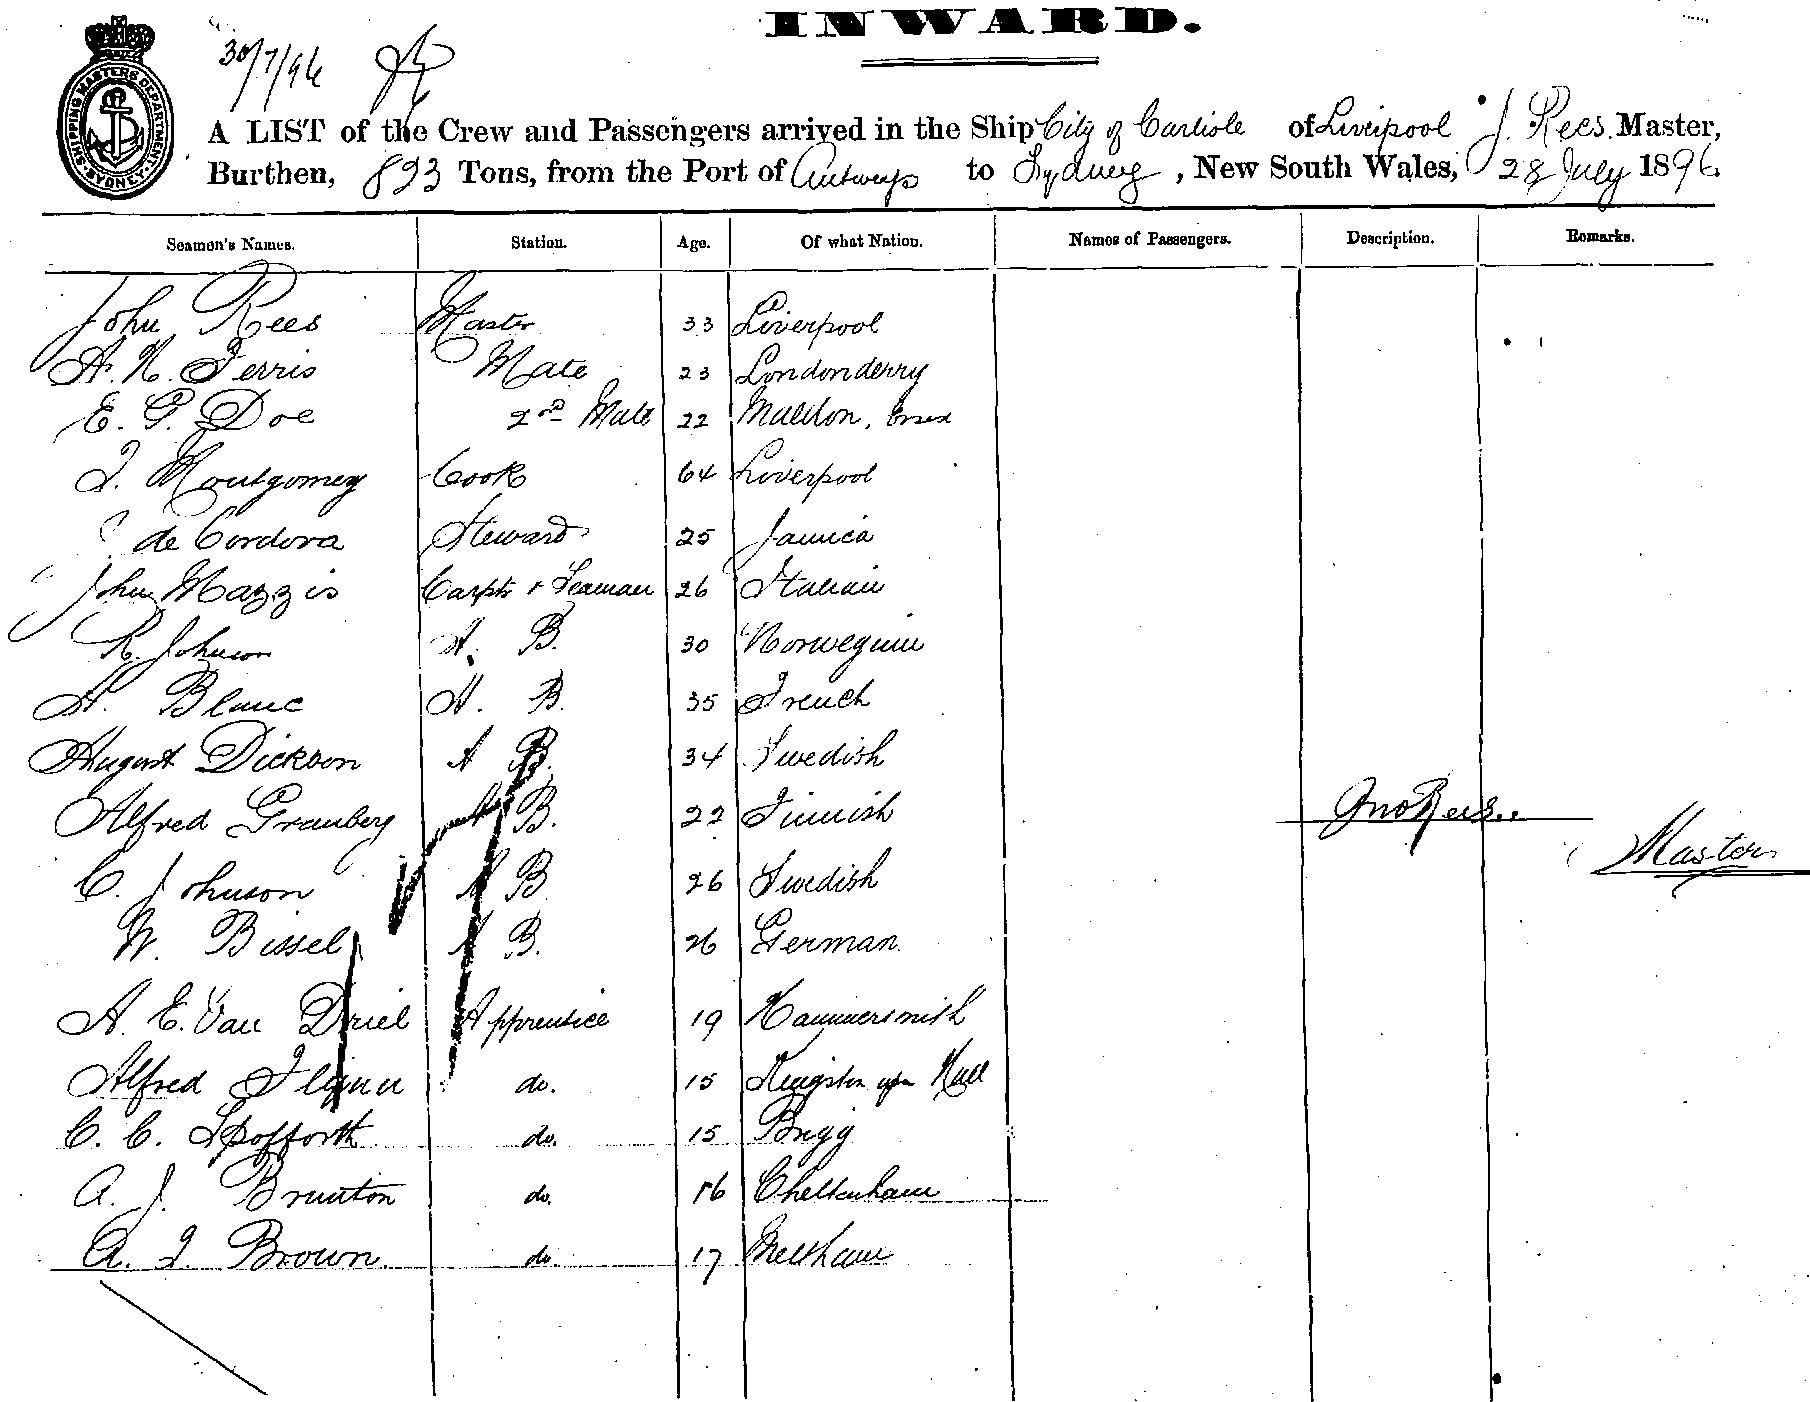 INWARD.
SHIPPING MASTERS DEPARTMENT SYDNEY
30/7/96
A LIST of the Crew and Passengers arrived in the Ship City of Carlisle of Liverpool J. Rees Master,
Burthen, 893 Tons, from the Port of Antwerp to Sydney, New South Wales, 28 July 1896.
Seamen's Names. Station. Age. Of what Nation. Names of Passengers. Description. Remarks.
John Rees Master 33 Liverpool
A. N. Ferris Mate 23 Londonderry
E. G. Doe 2nd Mate 22 Maldon, Essex
J. Montgomey Cook 64 Liverpool
de Cordova Steward 25 Jamica
John Mazzis Carptr & Seaman 26 Italian
R. Johnson A. B. 30 Norwegian
A. Blanc A. B. 35 French
August Dickson A B. 34 Swedish
Alfred Granberg A B. 22 Finnish
Jno Rees..
Master
C. Johnson A B 26 Swedish
W. Bissel A B. 26 German
A. E. Van Driel Apprentice 19 Hammersmith
Alfred Flynn do. 15 Kingston upon Hull
C. C. Spofforth do. 15 Brigg
A. J. Brunton do. 16 Cheltenham
A. J. Brown do. 17 Meltham
17